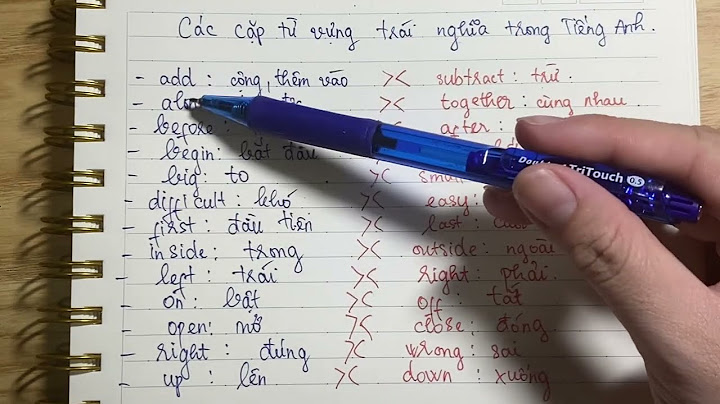 Các cặp từ vựng trái nghĩa trong Tiếng Anh.
- add : cộng, thêm vào >< subtract : trừ.
- >< together : cùng nhau
- before : >< after :
- begin: bắt đầu
- big : to >< small
- difficult : khó >< easy :
- first : đầu tiên >< last :
- inside : trong >< outside : ngoài
- left : trái >< right : phải
- on : bật >< off : tắt
- open : mở >< close : đóng
- right : đúng >< wrong : sai
- up : lên >< down : xuống
TriTouch 0.5